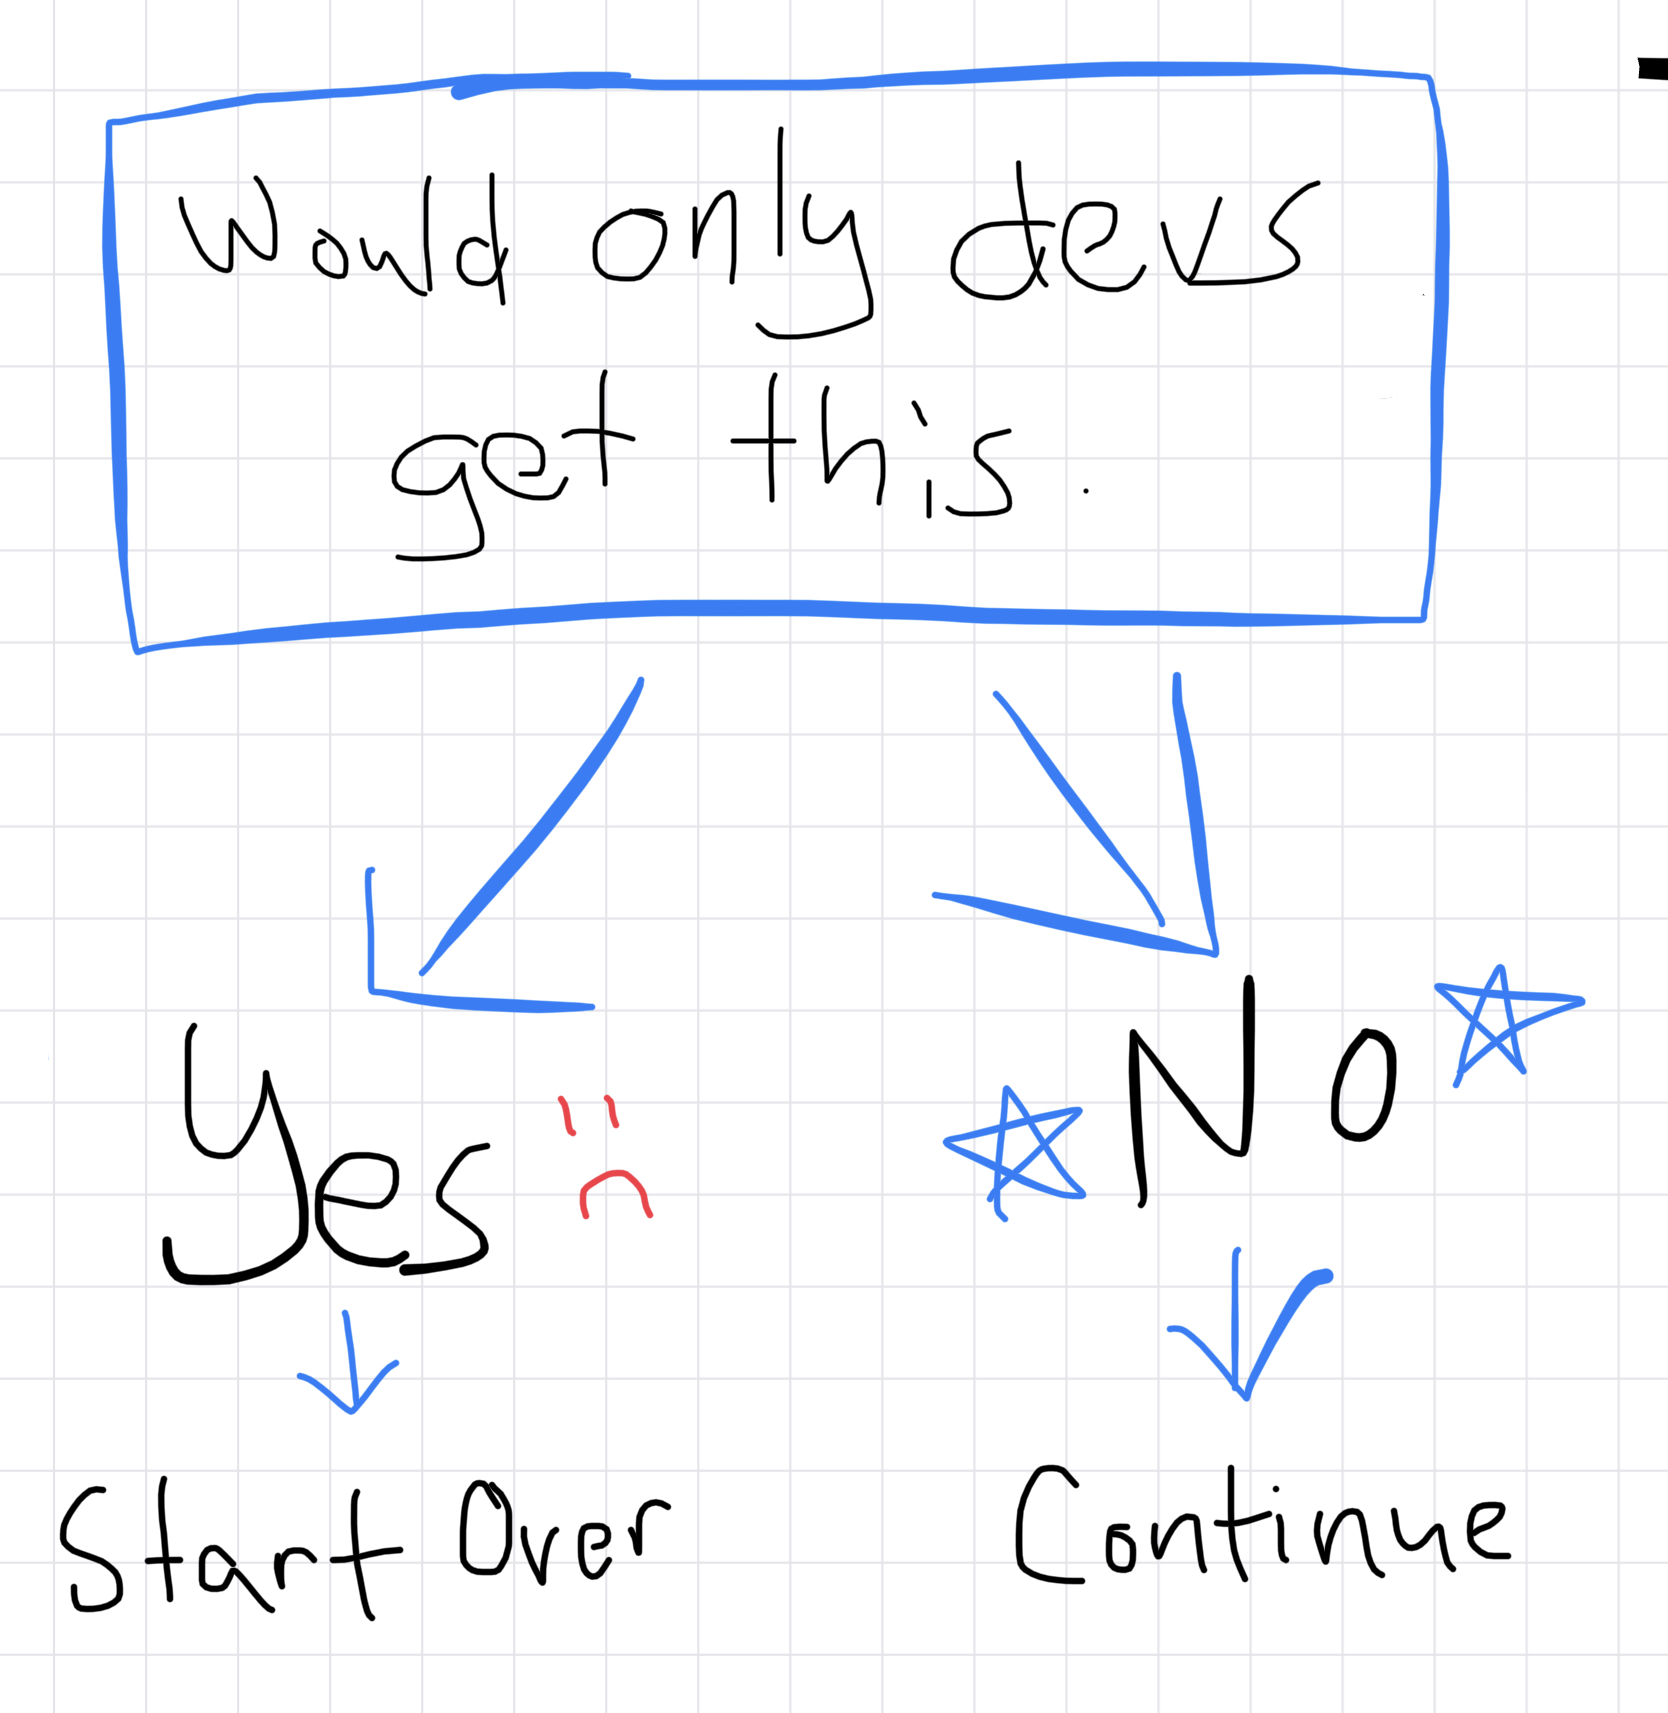 Would only devs
get this.
Yes
No
Start Over
Continue